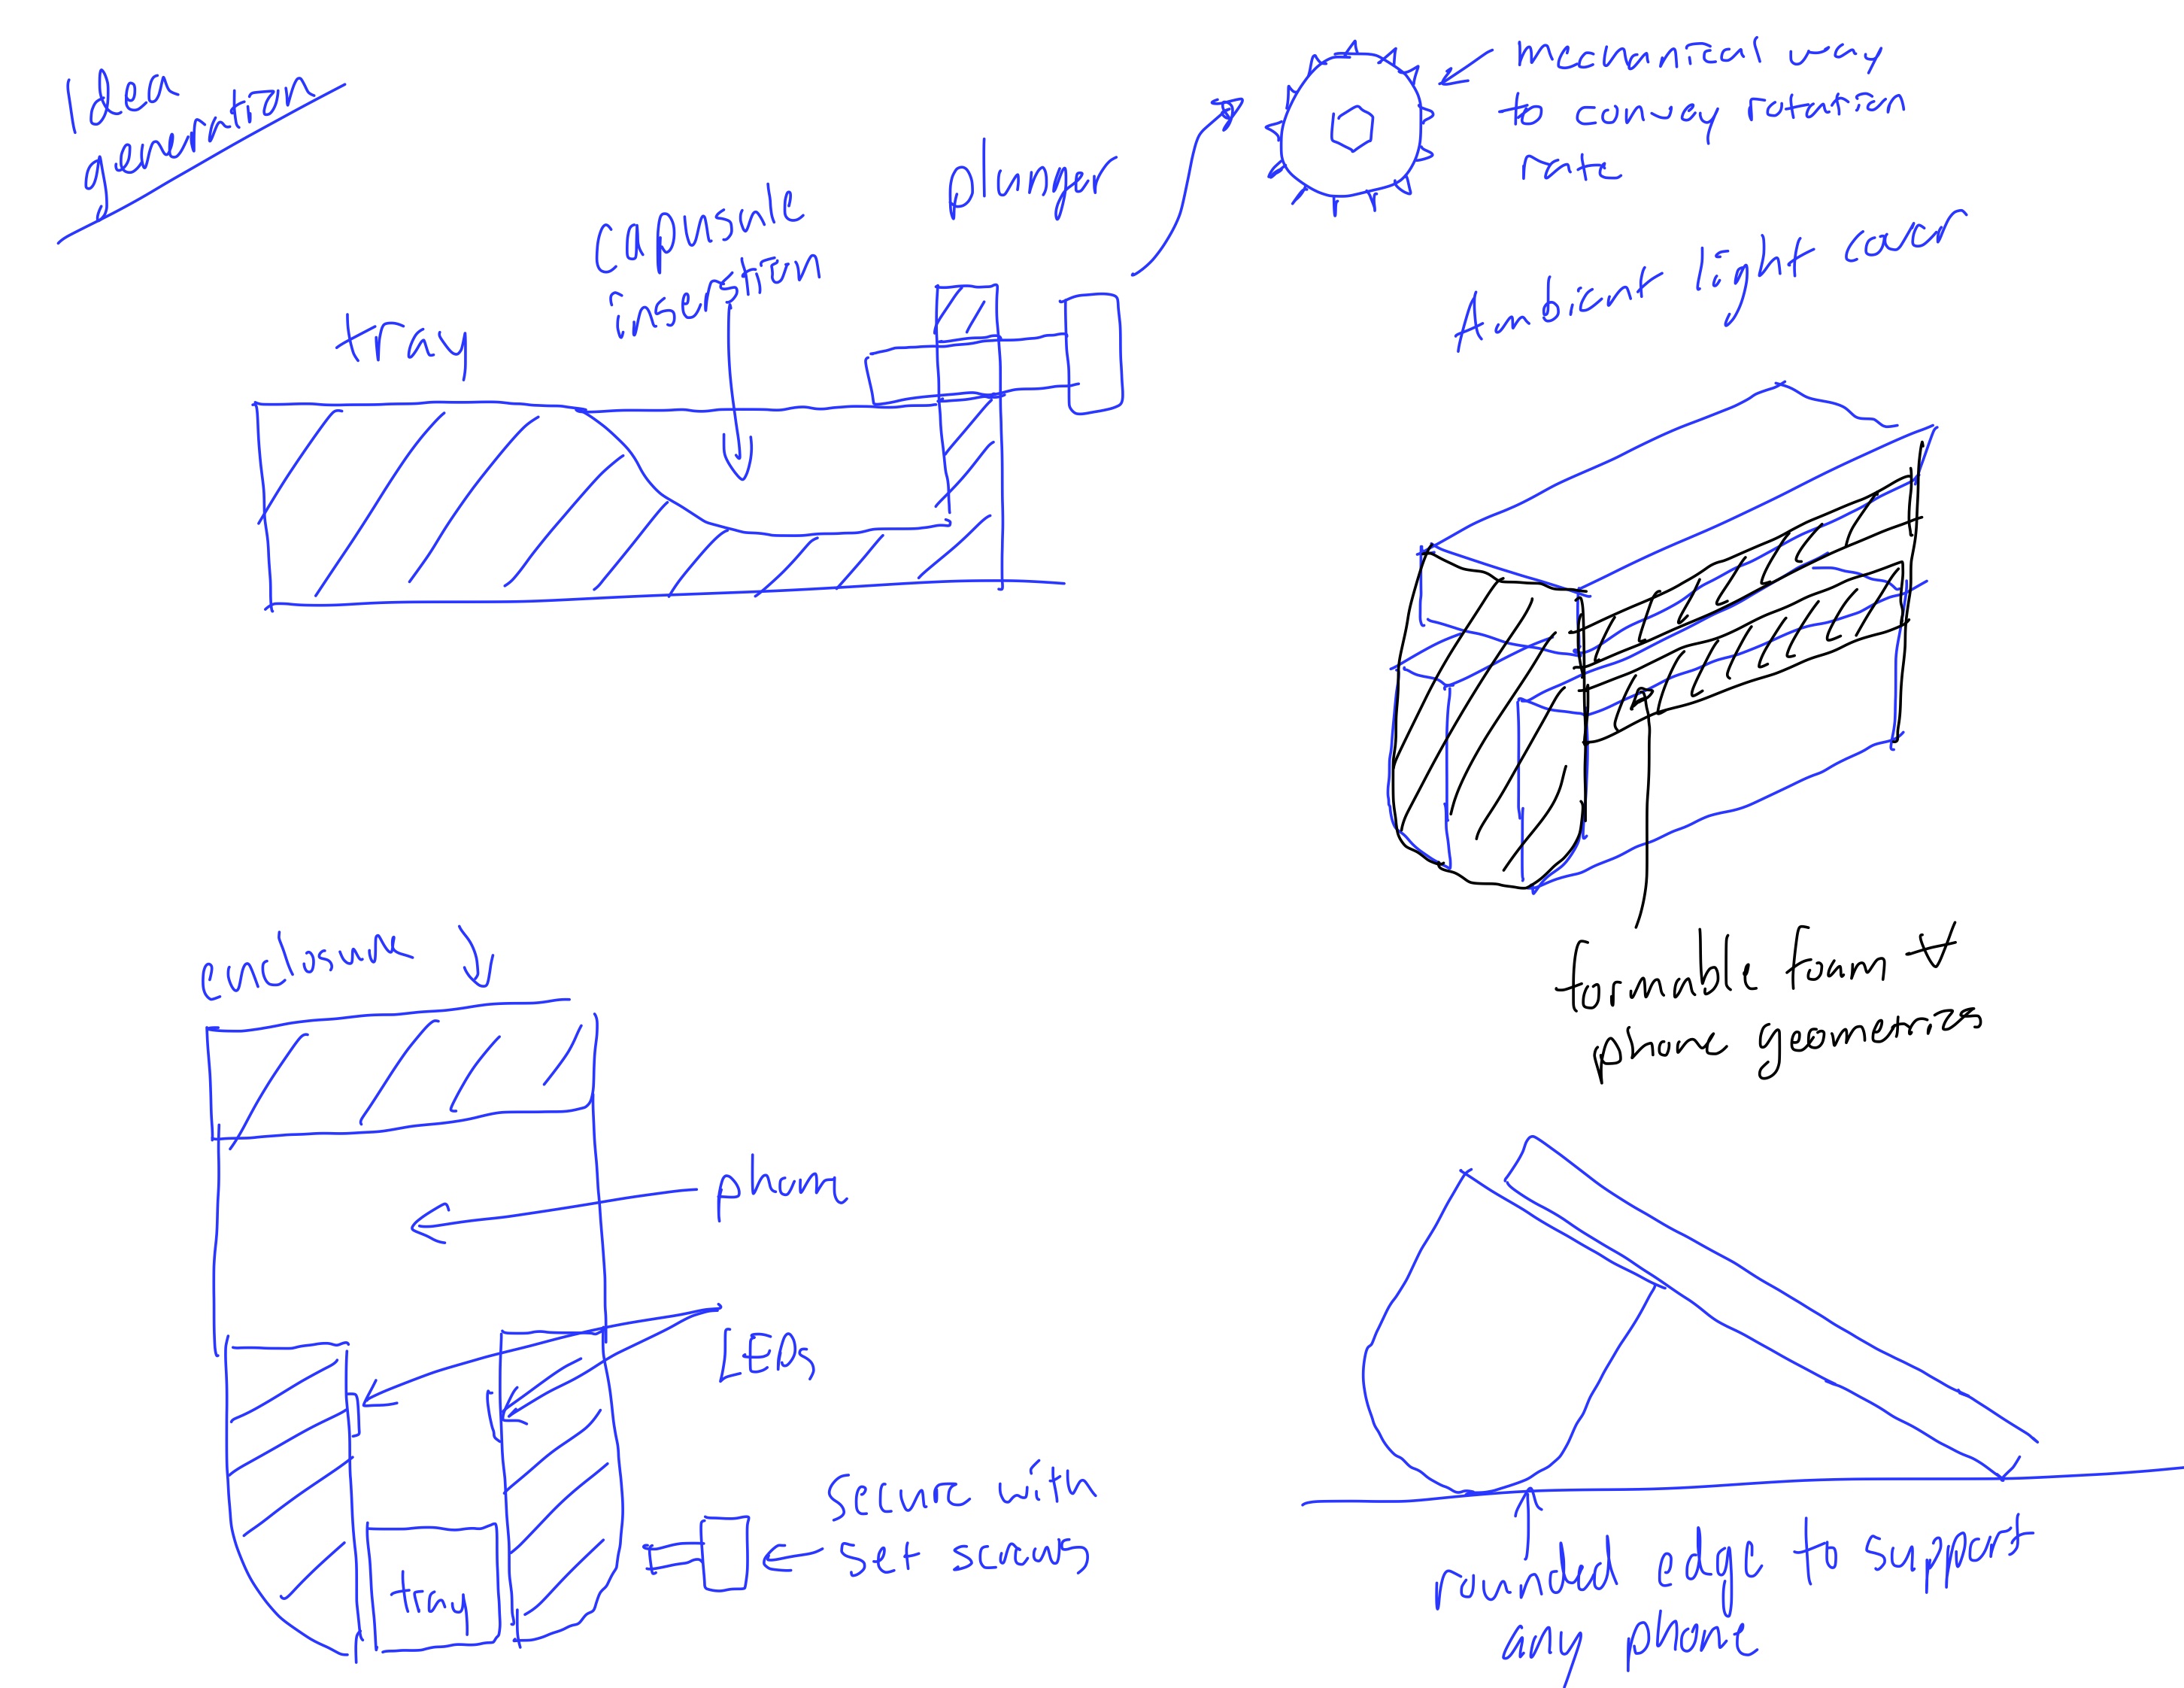 Idea
generation
tray
capusule
insertion
plunger
mechanical way
to convey rotation
rate
Ambient light cover
formable foam ∀
phone geometries
enclosure
phone
LEDs
tray
secure with
set screws
rounded edge to support
any phone